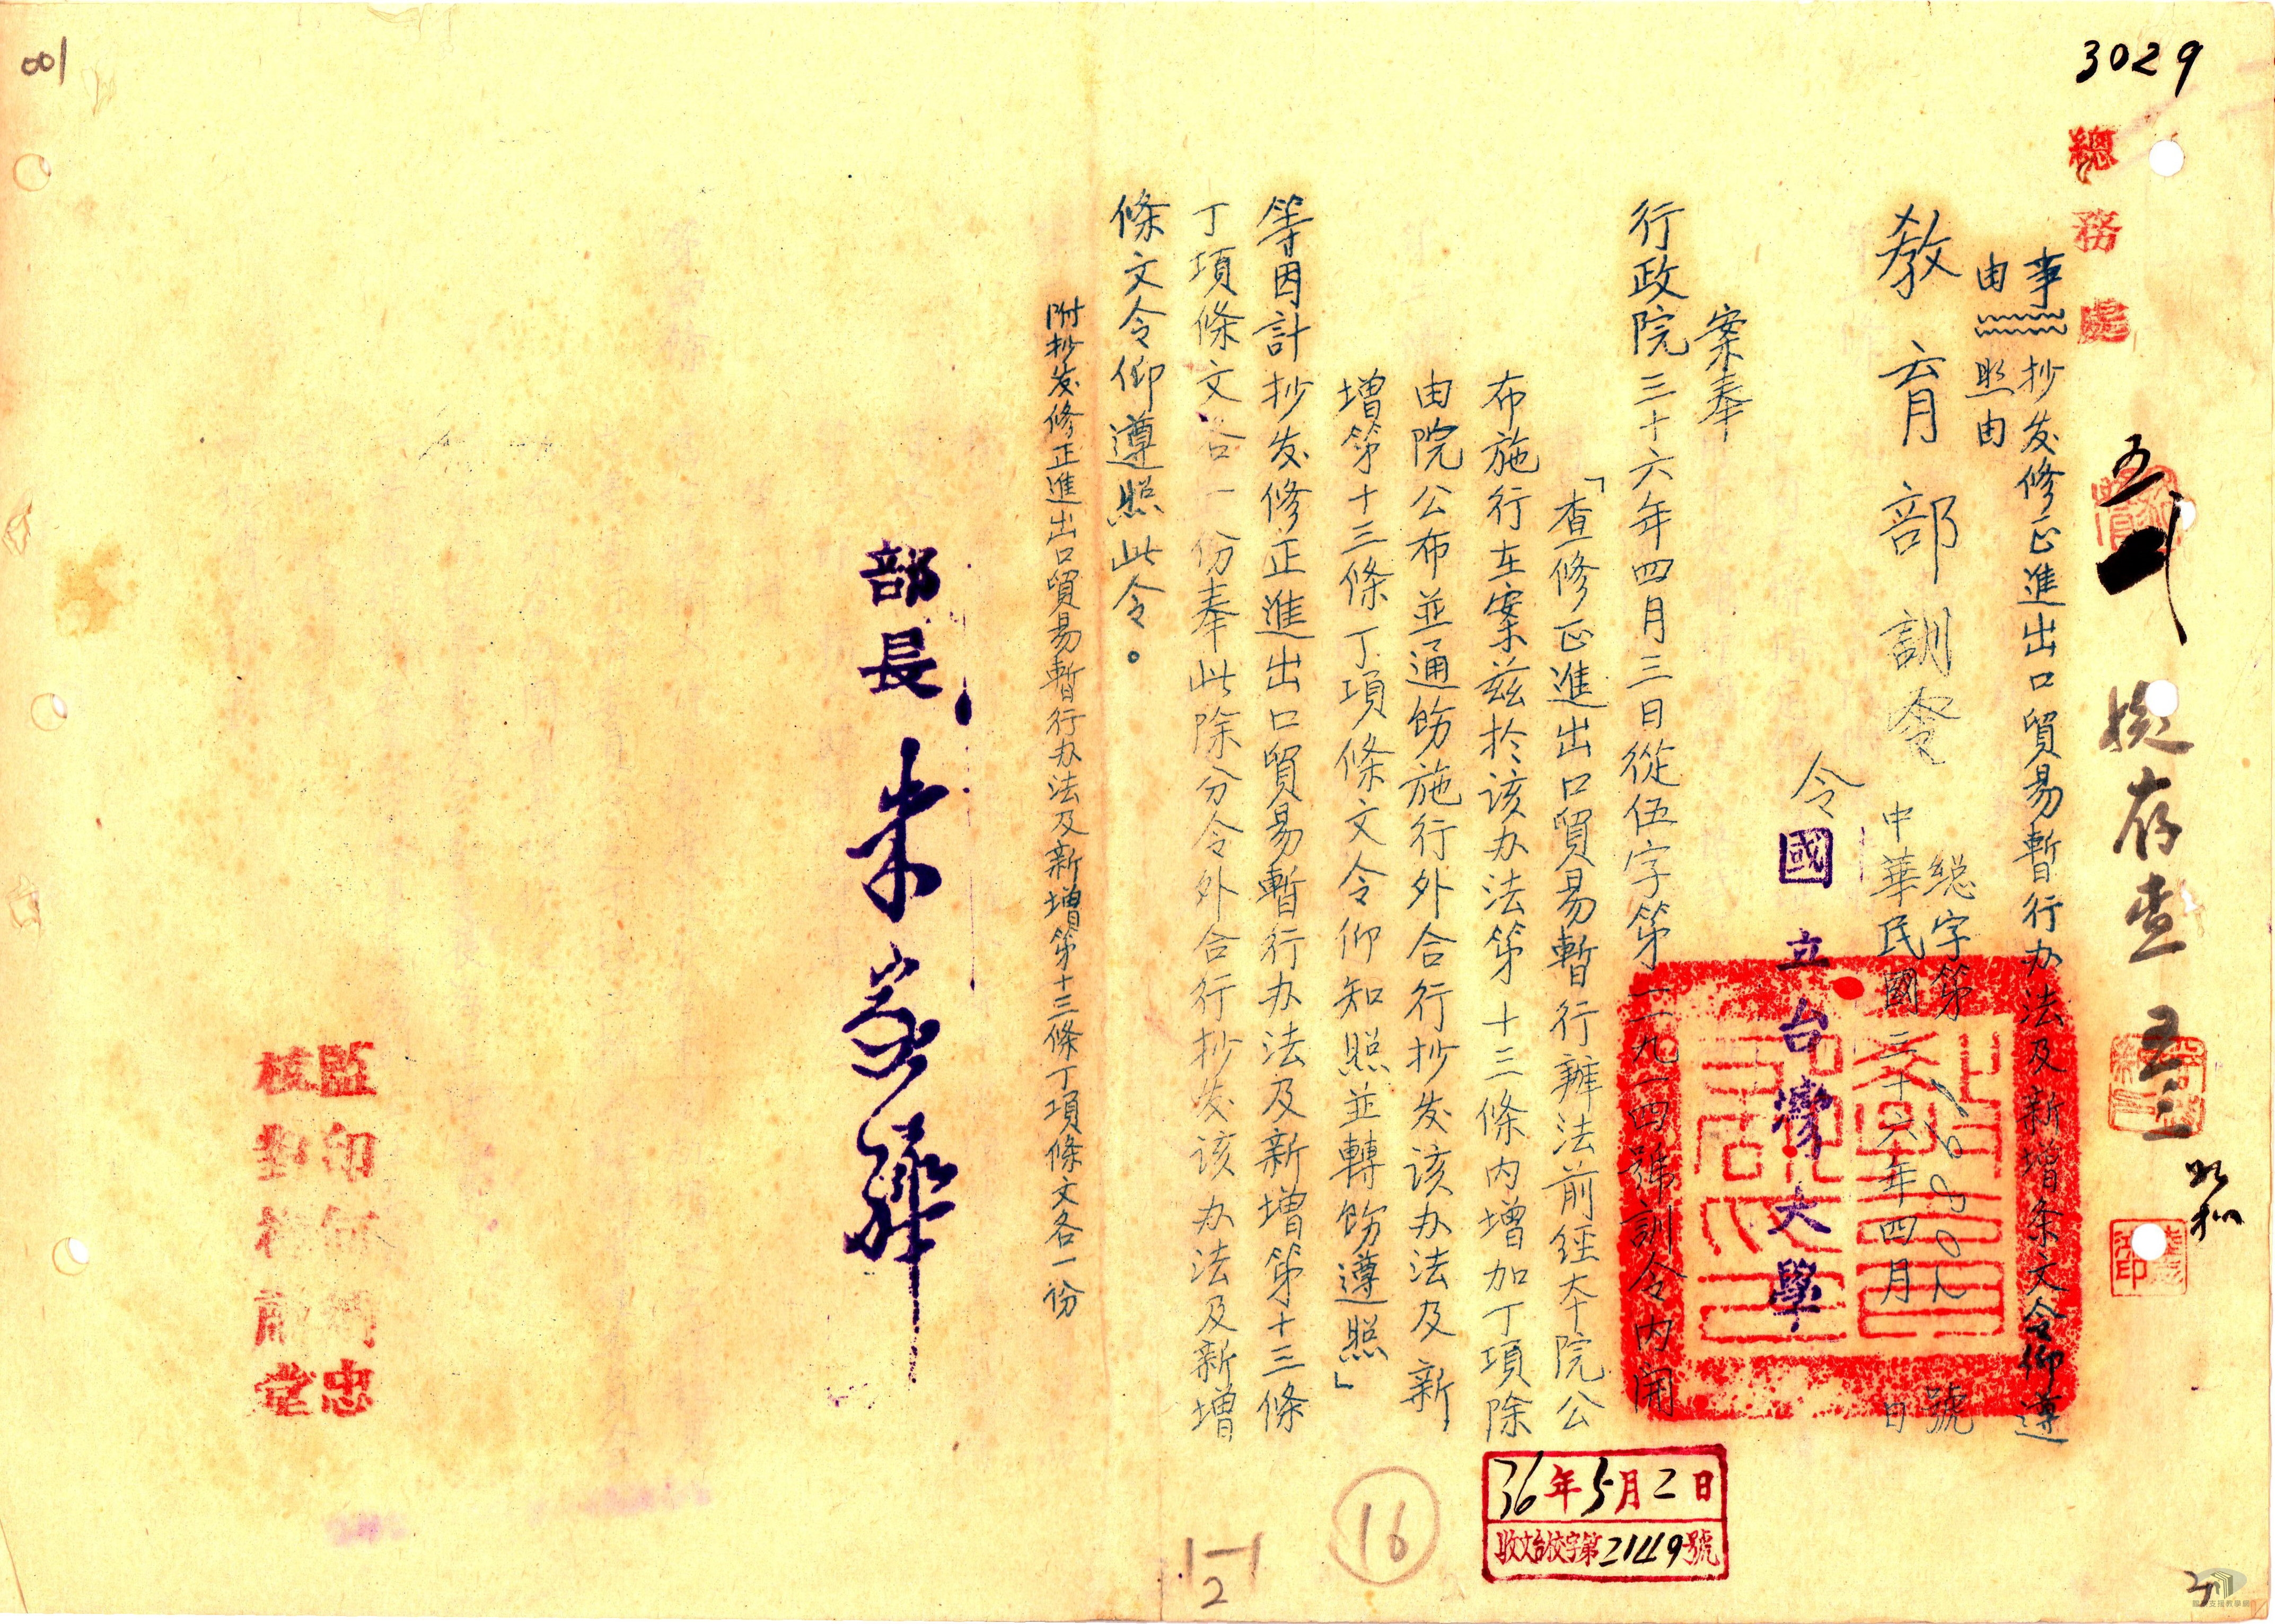 3029
001
總務處
擬存查
五三
事由
抄发修正進出口貿易暫行办法及新增条文令仰遵
照由
教育部訓令
総字第
號
中華民國三十六年四月 日
令
國立台灣大學
案奉
行政院三十六年四月三日從伍字第一二九一四號訓令內開
「查修正進出口貿易暫行辦法前經本院公
布施行在案茲於该办法第十三條內增加丁項除
由院公布並通飭施行外合行抄发该办法及新
增第十三條丁項條文令仰知照並轉飭遵照」
等因計抄发修正進出口貿易暫行办法及新增第十三條
丁項條文各一份奉此除分令外合行抄发该办法及新增
條文令仰遵照此令。
附抄发修正進出口貿易暫行办法及新增第十三條丁項條文各一份
部長朱家驊
監印
忠
校對
36年5月2日
收文台校字第2149號
16
1—1
2